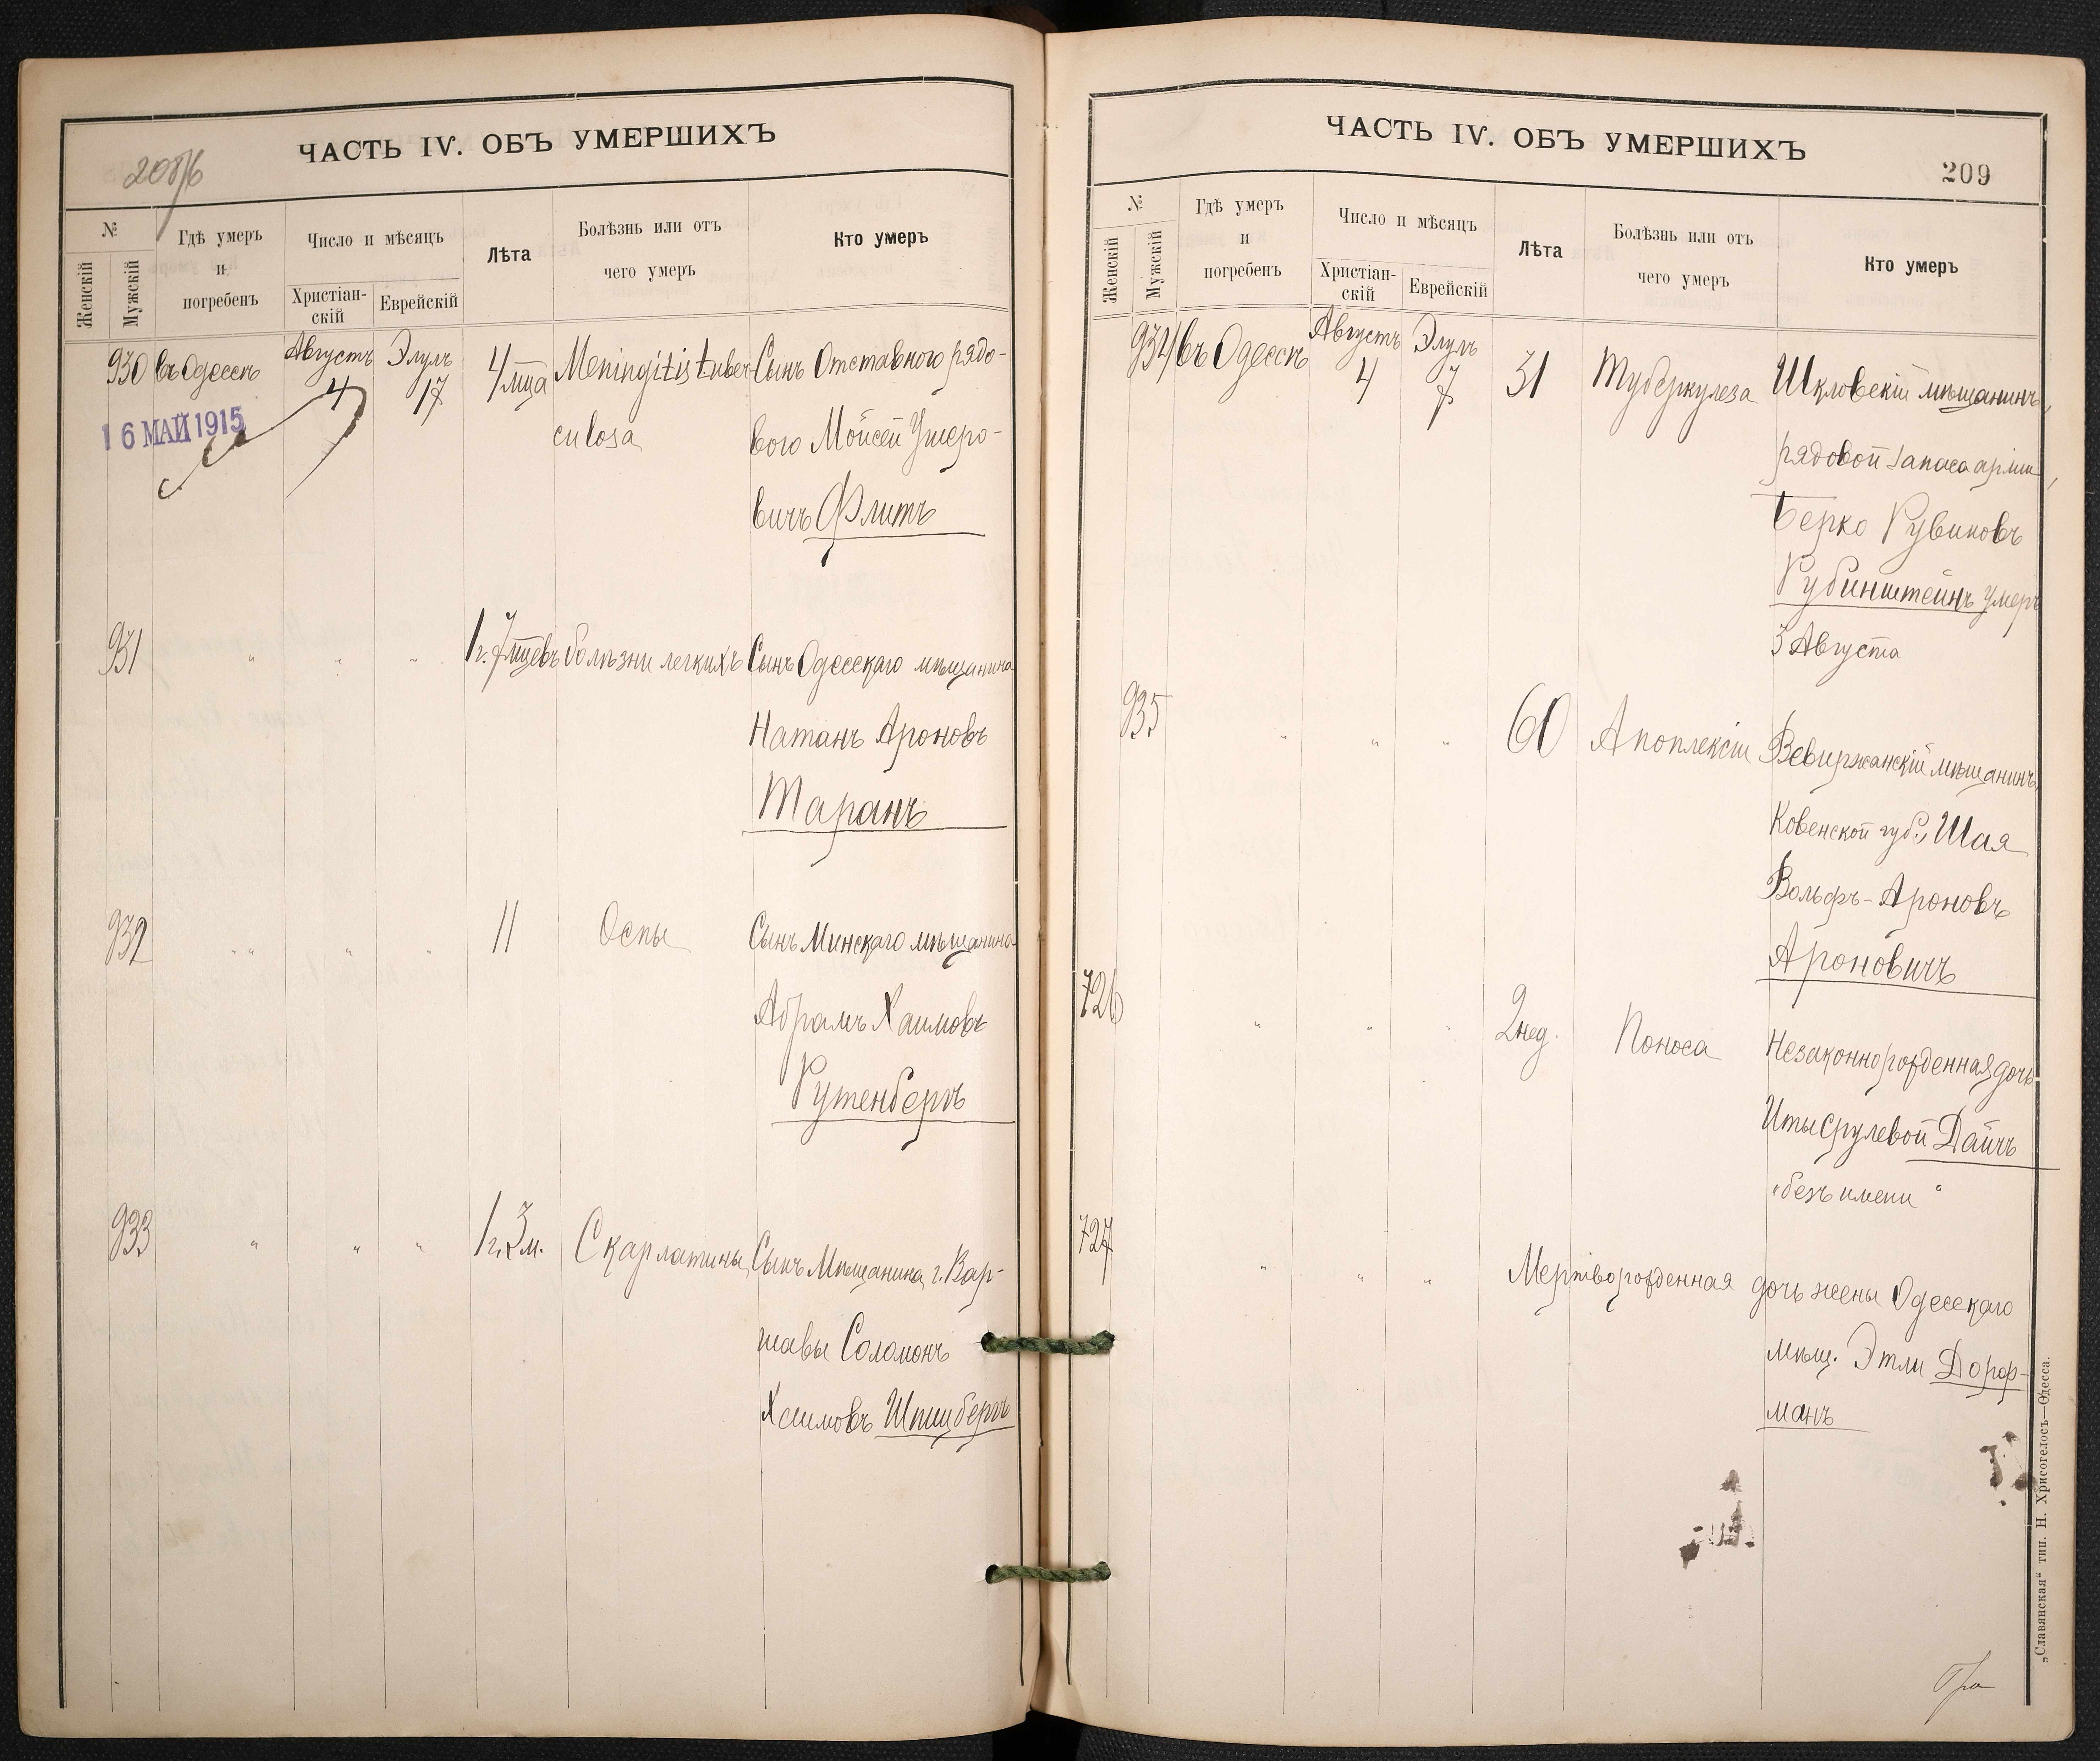 ЧАСТЬ IV. ОБЪ УМЕРШИХЪ
№
Женскій
Мужскій
Гдѣ умеръ
и
погребенъ
Число и мѣсяцъ
Христіан-
скій
Еврейскій
Лѣта
Болѣзнь или отъ
чего умеръ
Кто умеръ
930 въ Одессѣ Августъ 4 Элулъ 17 4 мца Meningitis tuber- Сынъ Отставного рядо-
16 МАЙ 1915
culosa вого Мойсей Ушеро-
вичъ Флитъ
931 " " " 1 г. 7 мцевъ болѣзни легкихъ Сынъ Одесскаго мѣщанина
Натанъ Ароновъ
Таранъ
932 " " " " 11 Оспы Сынъ Минскаго мѣщанина
Абрамъ Хаимовъ
Рутенбергъ
933 " " " 1 г. 3 м. Скарлатины Сынъ Мѣщанина г. Вар-
шавы Соломонъ
Хаимовъ Шпицбергъ
ЧАСТЬ IV. ОБЪ УМЕРШИХЪ
209
№
Женскій
Мужскій
Гдѣ умеръ
и
погребенъ
Число и мѣсяцъ
Христіан-
скій
Еврейскій
Лѣта
Болѣзнь или отъ
чего умеръ
Кто умеръ
934 въ Одессѣ Августъ 4 Элулъ 7 31 Туберкулеза Шкловскій мѣщанинъ,
рядовой запаса арміи,
Берко Рувиновъ
Рубинштейнъ умеръ
3 Августа
935 " " " 60 Апоплексіи Вевиржанскій мѣщанинъ,
Ковенской губ., Шая
Вольфъ-Ароновъ
Ароновичъ
726 " " " 2 нед. Поноса Незаконнорожденная дочь
Иты Срулевой Дайчъ
"безъ имени"
727 " " " Мертворожденная дочь жены Одесскаго
мѣщ. Этли Дорф-
манъ
„Славянская“ тип. Н. Хрисогелосъ—Одесса.